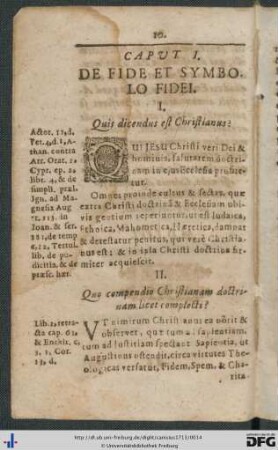 10.
CAPUT I.
DE FIDE ET SYMBO-
LO FIDEI.
I.
Quis dicendus est Christianus?
QUI JESU Christi veri Dei &
hominis, salutarem doctri-
nam in ejus Ecclesia profite-
tur.
Omnes proinde cultus & sectas, quæ
extra Christi doctrinã & Ecclesiam ubi-
vis gentium reperiuntur, ut est Judaica,
Ethnica, Mahometica, Hæretica, damnat
& detestatur penitus, qui verè Christia-
nus est; & in ipsa Christi doctrina fir-
miter acquiescit.
Actor. 11, d.
Pet. 4, d. 1, A-
than. contra
Arr. Orat. 2.
Cypr. ep. 2,
lib. 4, & de
simpl. præl.
Ign. ad Ma-
gnesia Aug
tr. 113. in
Joan. & ser.
181, de temp
c, 12, Tertul
lib. de pu-
dicitia. & de
præsc. hær.
II.
Quo compendio Christianam doctri-
nam licet complecti?
UT nimirum Christianus ea nôrit &
observet, quæ tum ad sapientiam,
tum ad justitiam spectant Sapientia, ut
Augustinus ostendit, circa virtutes The-
ologicas versatur, Fidem, Spem, & Cha-
rita-
Lib. 2, retra-
cta cap. 63,
& Enchir. c,
2, 3, Cor.
13, d.
http://dl.ub.uni-freiburg.de/diglit/canisius1713/0014
© Universitätsbibliothek Freiburg
gefördert durch die
DFG